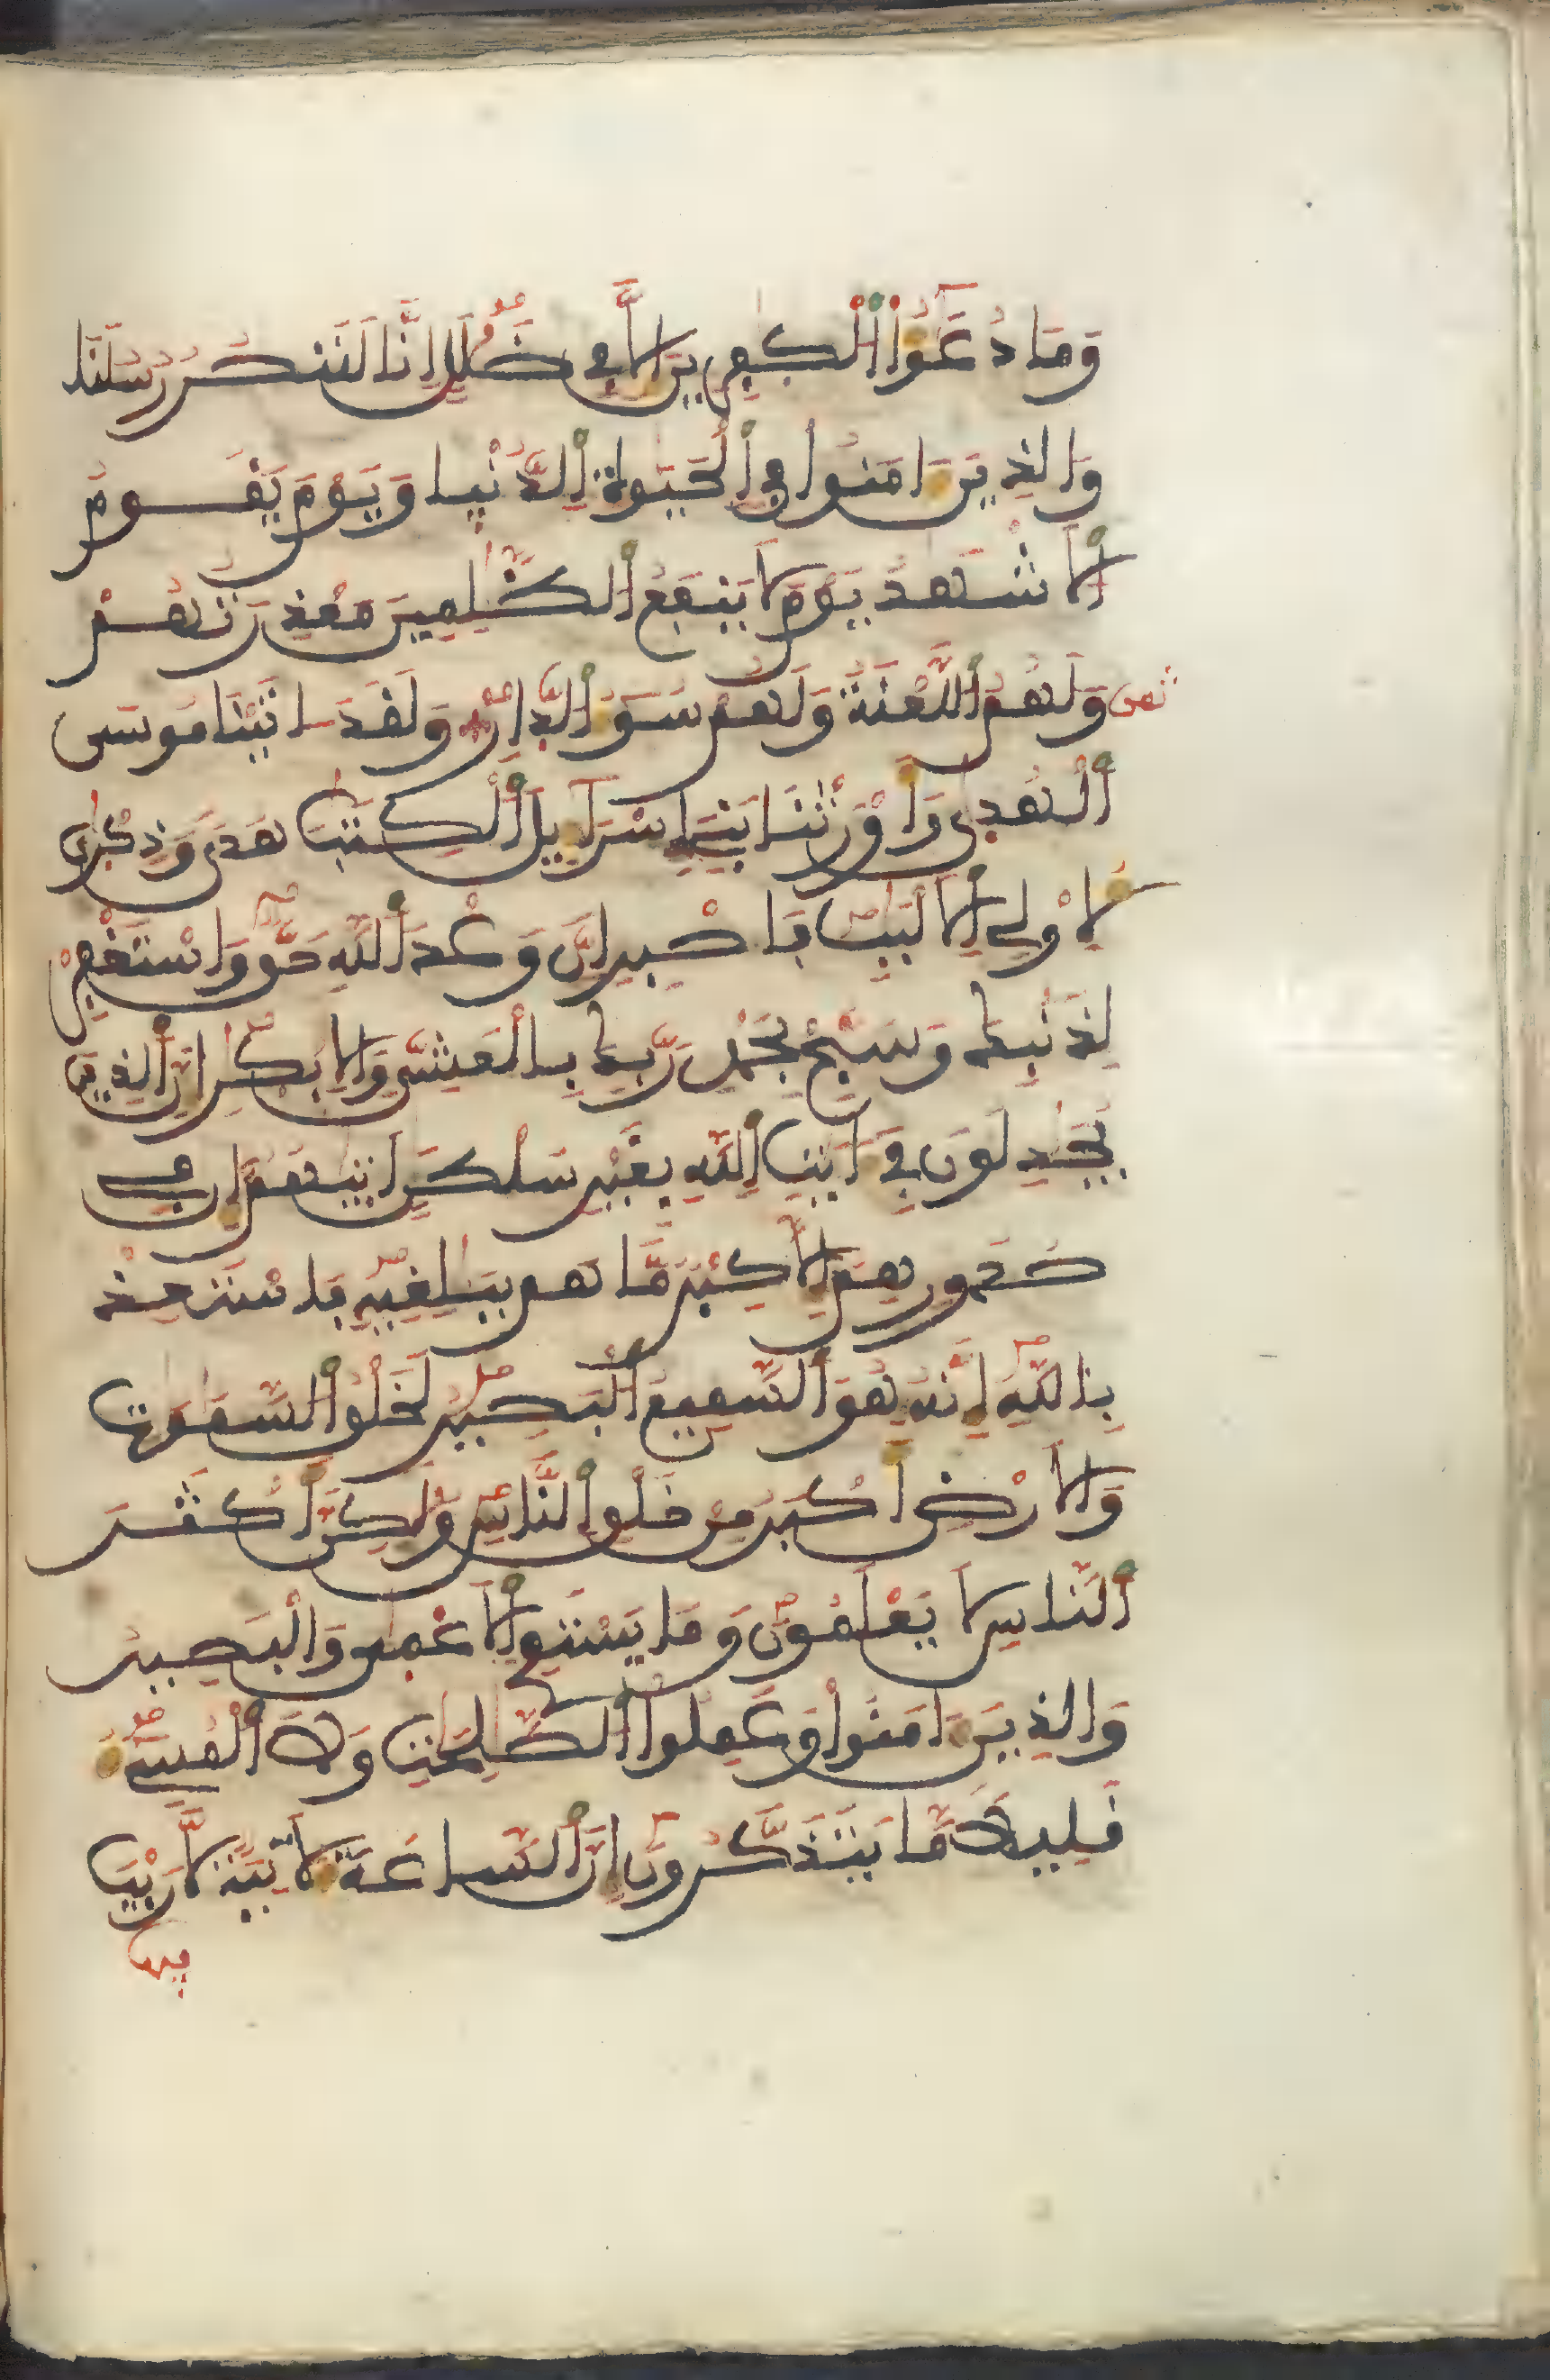 وَمَا دُعَٰٓؤُا۟ اُ۬لْكٰفِرِينَ إِلَّا فِے ضَلَٰلٍ اِنَّا لَنَنصُرُ رُسُلَنَا
وَالذِينَ ءَامَنُوا۟ فِے اِ۬لْحَيَوٰةِ اِ۬لدُّنْيَا وَيَوْمَ يَقُومُ
اُ۬لَاشْهَٰدُ يَوْمَ لَا يَنفَعُ اُ۬لظَّٰلِمِينَ مَعْذِرَتُهُمْ
وَلَهُمُ اُ۬للَّعْنَةُ وَلَهُمْ سُوٓءُ اُ۬لدّ۪ارِ وَلَقَدَ اٰتَيْنَا مُوسَى
اَ۬لْهُدۭيٰ وَأَوْرَثْنَا بَنِےٓ إِسْرَآءِيلَ اَ۬لْكِتَٰبَ هُدىٗ وَذِكْرۭيٰ
لِأُوْلِے اِ۬لَالْبَٰبِ فَاصْبِرِ اِنَّ وَعْدَ اَ۬للَّهِ حَقّٞ وَاسْتَغْفِرْ
لِذَنۢبِكَ وَسَبِّحْ بِحَمْدِ رَبِّكَ بِالْعَشِيِّ وَالِابْكٰ۪رِ إِنَّ اَ۬لذِينَ
يُجَٰدِلُونَ فِےٓ ءَايَٰتِ اِ۬للَّهِ بِغَيْرِ سُلْطَٰنٍ اَتيٰهُمُۥٓ إِن فِے
صُدُورِهِمُۥٓ إِلَّا كِبْرٞ مَّا هُم بِبَٰلِغِيهِ فَاسْتَعِذْ
بِاللَّهِ إِنَّهُۥ هُوَ اَ۬لسَّمِيعُ اُ۬لْبَصِيرُ لَخَلْقُ اُ۬لسَّمَٰوَٰتِ
وَالَارْضِ أَكْبَرُ مِنْ خَلْقِ اِ۬لنَّاسِ وَلَٰكِنَّ أَكْثَرَ
اَ۬لنَّاسِ لَا يَعْلَمُونَ وَمَا يَسْتَوِے اِ۬لَاعْم۪يٰ وَالْبَصِيرُ
وَالذِينَ ءَامَنُوا۟ وَعَمِلُوا۟ اُ۬لصَّٰلِحَٰتِ وَلَا اَ۬لْمُسِےٓءُ
قَلِيلاٗ مَّا يَتَذَكَّرُونَ إِنَّ اَ۬لسَّاعَةَ لَأٓتِيَةٞ لَّا رَيْبَ
فيها